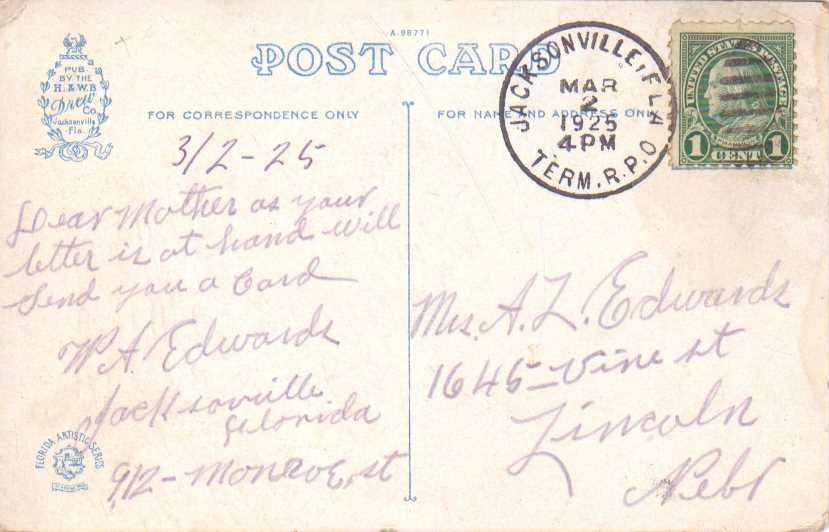 A-98771
POST CARD
PUB.
BY THE
H. & W.B
Drew
Co.
Jacksonville
Fla.
FOR CORRESPONDENCE ONLY
FOR NAME AND ADDRESS ONLY
JACKSONVILLE, FLA
MAR
2
1925
4 PM
TERM. R.P.O.
UNITED STATES POSTAGE
1 CENT 1
3/2-25
Dear Mother as your
letter is at hand will
send you a Card
W.A. Edwards
Jacksonville
Florida
912-Monroe, st
Mrs. A. L. Edwards
1645-Vine st
Lincoln
Nebr
FLORIDA ARTISTIC SERIES